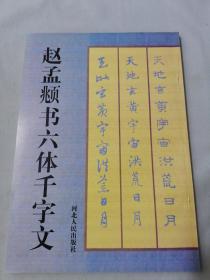 赵孟頫书六体千字文
河北人民出版社
天地玄黄宇宙洪荒日月
天地玄黄宇宙洪荒日月
天地玄黄宇宙洪荒日月